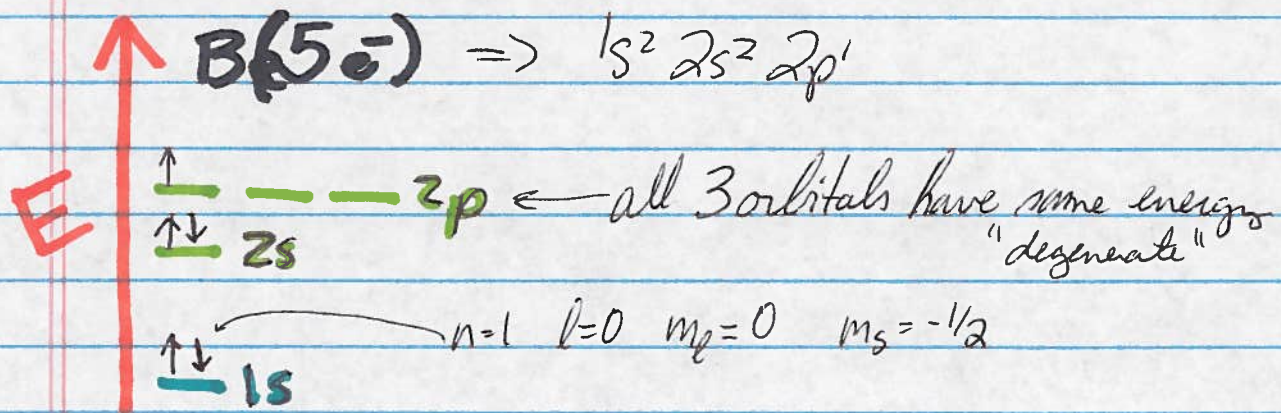 B(5e⁻) => 1s² 2s² 2p¹
E
↑
2p ← all 3 orbitals have same energy
"degenerate"
↑↓
2s
n=1 l=0 mₗ=0 mₛ=-1/2
↑↓
1s